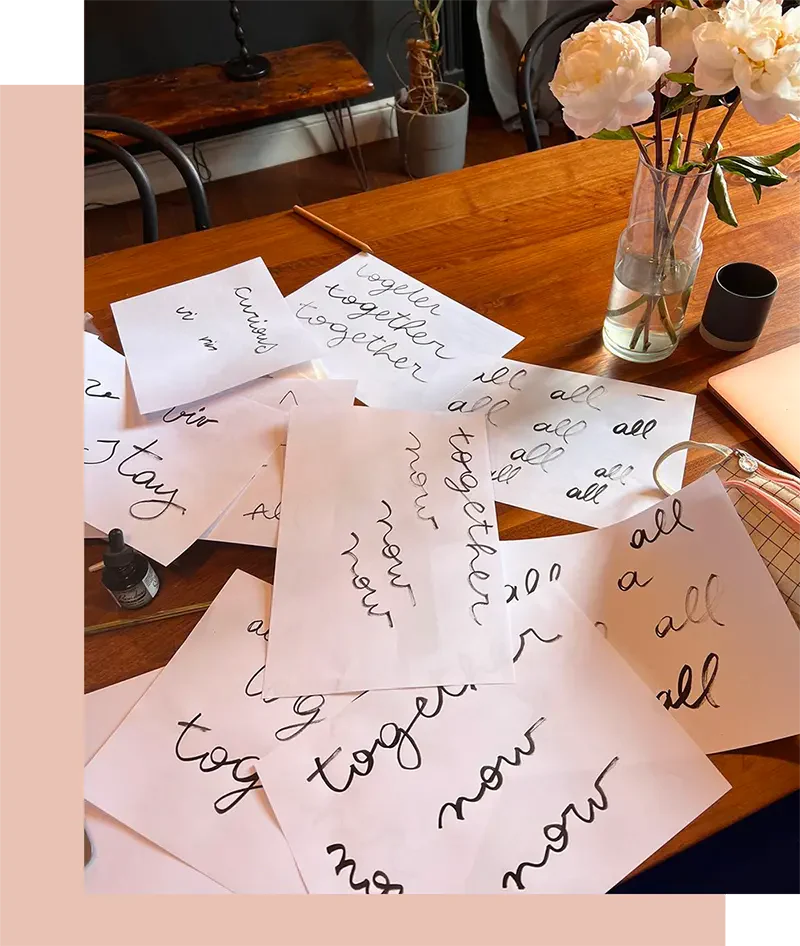 curious
vi
viv
togeter
together
together
all
all
all
all
all
all
all
all
all
viv
Stay
together
now
now
now
all
a
all
all
tog
together
now
now